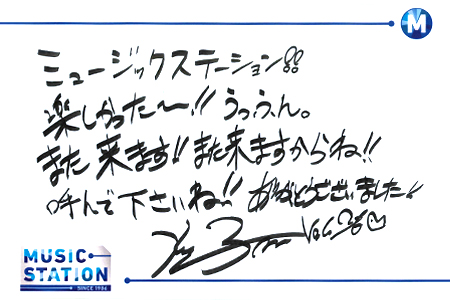 M
ミュージックステーション!!
楽しかった〜!! うっふん。
また来ます!! また来ますからね!!
呼んで下さいね!! ありがとうございました!
MUSIC
STATION
SINCE 1986